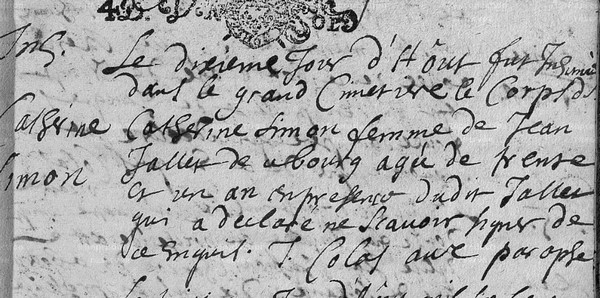 Inh.
Catherine
Simon
Le dixieme Jour d'Hout fut Inhumé
dans le grand Cimetiere le Corps de
Catherine Simon femme de Jean
Tallet de bourg agé de trente
et un an en presence dudit Tallet
qui a declaré ne scavoir signer de
ce enquis. J. Colas avec paraphe